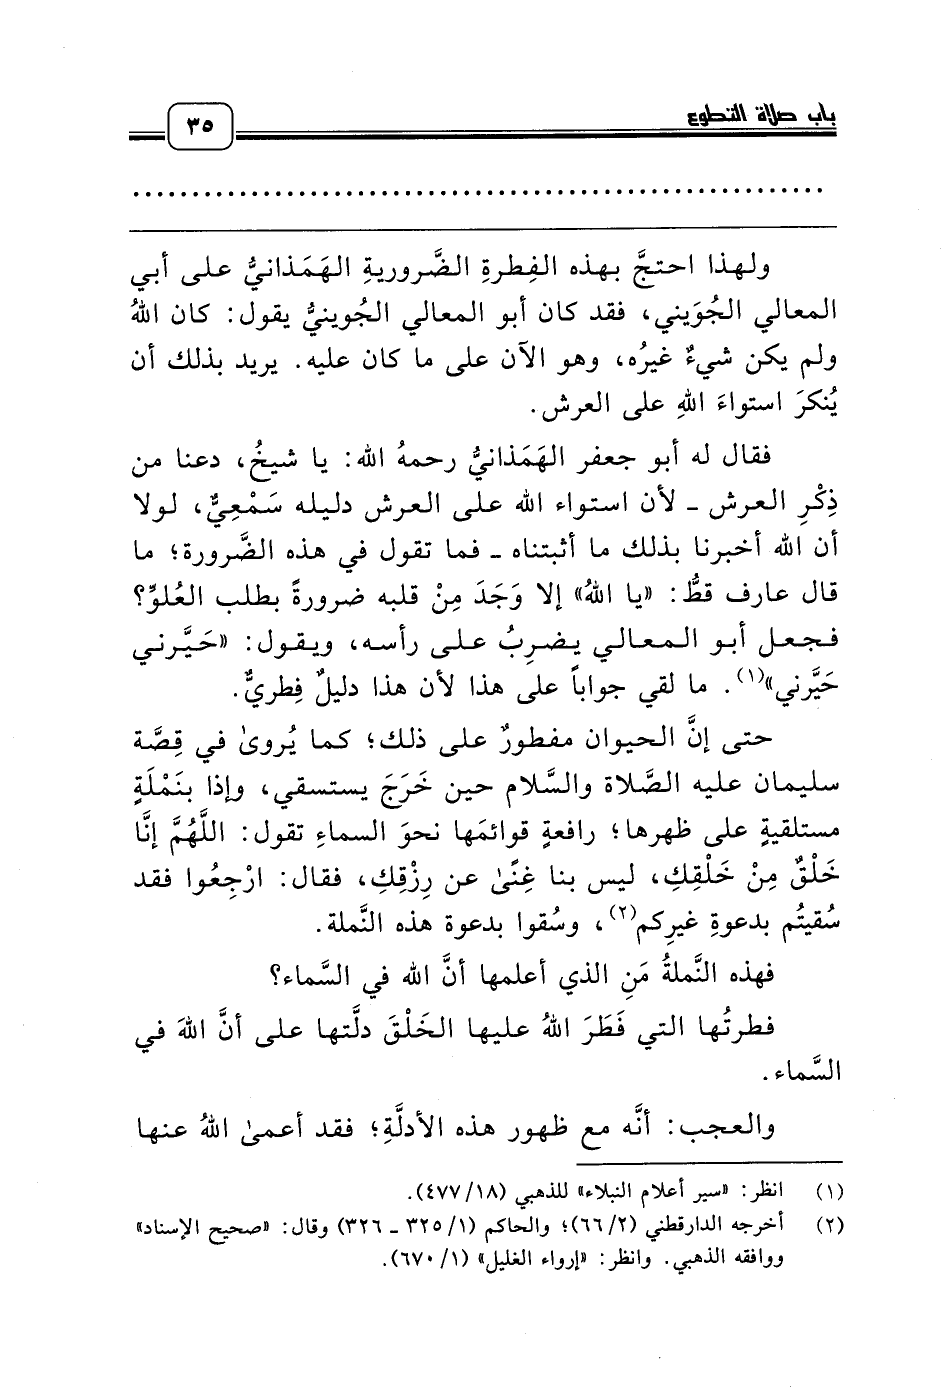 باب صلاة التطوع
٣٥
ولهذا احتجَّ بهذه الفِطرةِ الضَّروريةِ الهَمَذانيُّ على أبي
المعالي الجُوَيني، فقد كان أبو المعالي الجُوينيُّ يقول: كان اللهُ
ولم يكن شيءٌ غيرُه، وهو الآن على ما كان عليه. يريد بذلك أن
يُنكرَ استواءَ اللهِ على العرش.
فقال له أبو جعفر الهَمَذانيُّ رحمهُ الله: يا شيخُ، دعنا من
ذِكْرِ العرش ـ لأن استواء الله على العرش دليله سَمْعِيٌّ، لولا
أن الله أخبرنا بذلك ما أثبتناه ـ فما تقول في هذه الضَّرورة؛ ما
قال عارف قطُّ: «يا اللهُ» إلا وَجَدَ مِنْ قلبه ضرورةً بطلب العُلوِّ؟
فجعل أبو المعالي يضرِبُ على رأسه، ويقول: «حَيَّرني
حَيَّرني»(١). ما لقي جواباً على هذا لأن هذا دليلٌ فِطريٌّ.
حتى إنَّ الحيوان مفطورٌ على ذلك؛ كما يُروىٰ في قِصَّة
سليمان عليه الصَّلاة والسَّلام حين خَرَجَ يستسقي، وإذا بنَمْلَةٍ
مستلقيةٍ على ظهرها؛ رافعةٍ قوائمَها نحوَ السماءِ تقول: اللَّهُمَّ إنَّا
خَلْقٌ مِنْ خَلْقِكِ، ليس بنا غِنًىٰ عن رِزْقِكِ، فقال: ارْجِعُوا فقد
سُقيتُم بدعوةِ غيرِكم(٢)، وسُقوا بدعوة هذه النَّملة.
فهذه النَّملةُ مَنِ الذي أعلمها أنَّ الله في السَّماء؟
فطرتُها التي فَطَرَ اللهُ عليها الخَلْقَ دلَّتها على أنَّ اللهَ في
السَّماء.
والعجب: أنَّه مع ظهور هذه الأدلَّةِ؛ فقد أعمىٰ اللهُ عنها
(١) انظر: «سير أعلام النبلاء» للذهبي (٤٧٧/١٨).
(٢) أخرجه الدارقطني (٦٦/٢)؛ والحاكم (٣٢٥/١ ـ ٣٢٦) وقال: «صحيح الإسناد»
ووافقه الذهبي. وانظر: «إرواء الغليل» (٦٧٠/١).